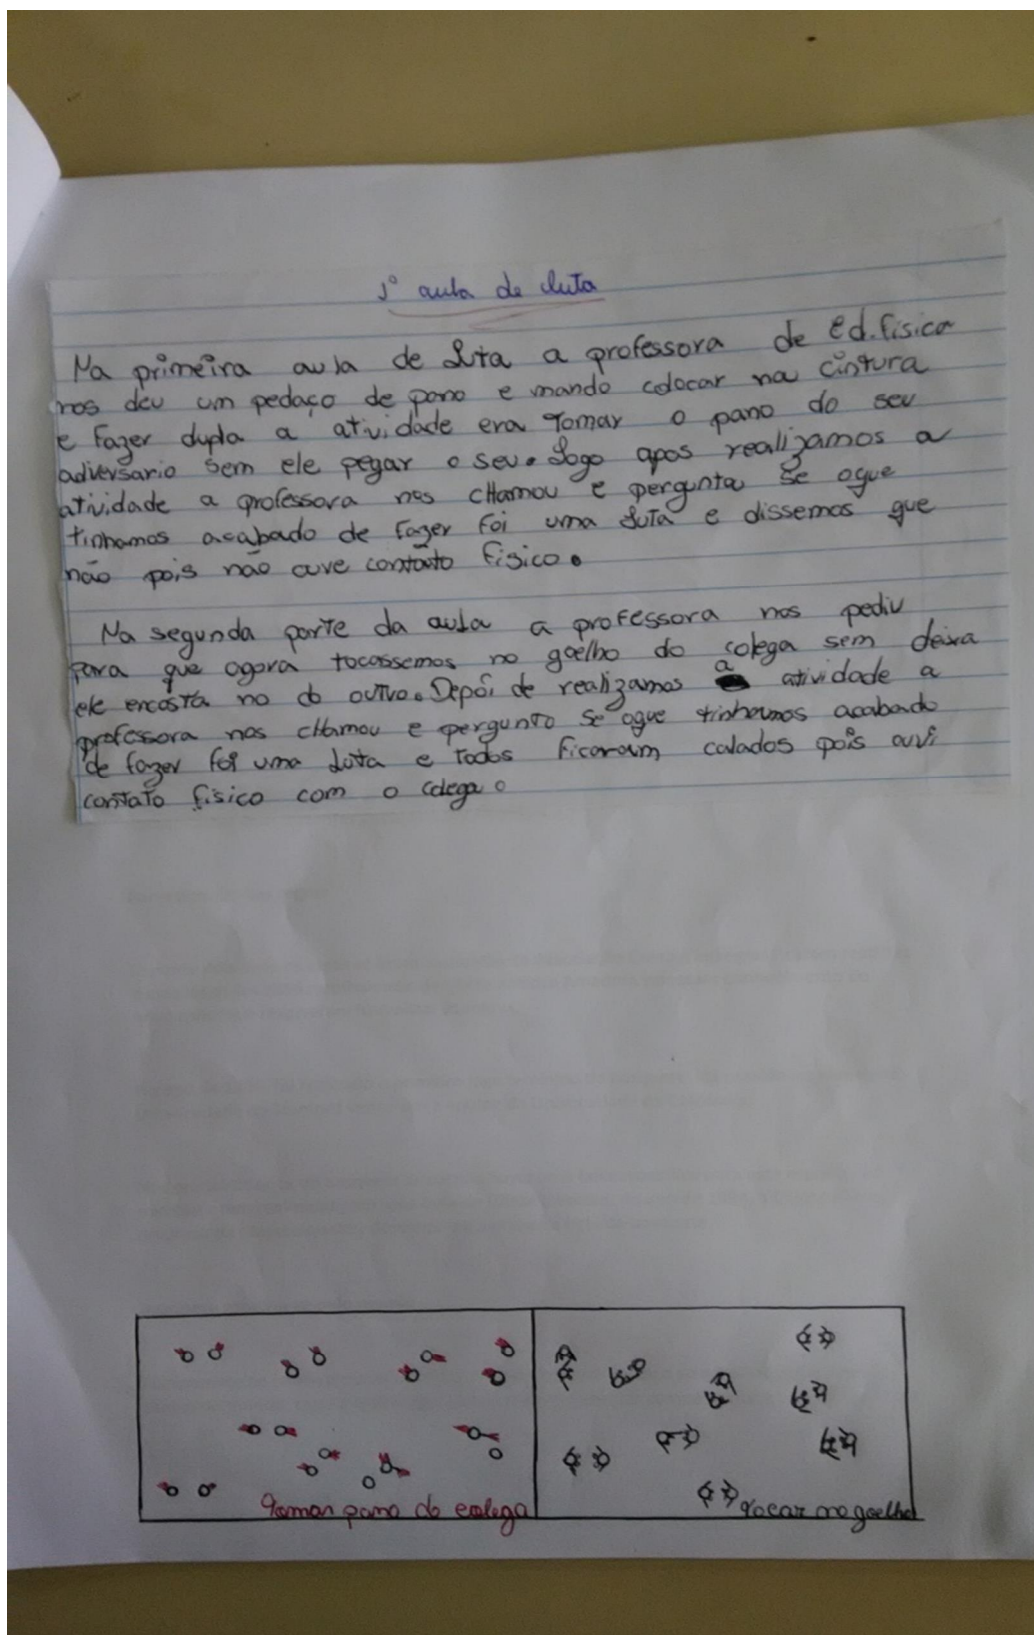 1º aula de luta
Na primeira aula de luta a professora de ed.fisica
nos deu um pedaço de pano e mando colocar na cintura
e fazer dupla a atividade era tomar o pano do seu
adversario sem ele pegar o seu. Logo apos realizamos a
atividade a professora nos chamou e pergunta se oque
tinhamos acabado de fazer foi uma luta e dissemos que
não pois não ouve contato fisico.
Na segunda parte da aula a professora nos pediu
para que agora tocassemos no goelho do colega sem deixa
ele encosta no do outro. Depoi de realizamos a atividade a
professora nos chamou e pergunto se oque tinhamos acabado
de fazer foi uma luta e todos ficaram calados pois ouvi
contato fisico com o colega
Tomar pano do colega
Tocar no goelho